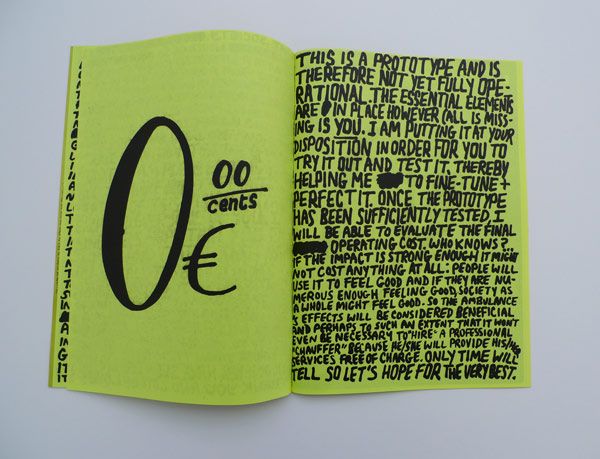 0
00
cents
€
THIS IS A PROTOTYPE AND IS
THEREFORE NOT YET FULLY OPE-
RATIONAL. THE ESSENTIAL ELEMENTS
ARE IN PLACE HOWEVER (ALL IS MISS-
ING IS YOU. I AM PUTTING IT AT YOUR
DISPOSITION IN ORDER FOR YOU TO
TRY IT OUT AND TEST IT, THEREBY
HELPING ME TO FINE-TUNE +
PERFECT IT. ONCE THE PROTOTYPE
HAS BEEN SUFFICIENTLY TESTED, I
WILL BE ABLE TO EVALUATE THE FINAL
OPERATING COST. WHO KNOWS?..
IF THE IMPACT IS STRONG ENOUGH IT MIGHT
NOT COST ANYTHING AT ALL: PEOPLE WILL
USE IT TO FEEL GOOD AND IF THEY ARE NU-
MEROUS ENOUGH FEELING GOOD, SOCIETY AS
A WHOLE MIGHT FEEL GOOD. SO THE AMBULANCE
'S EFFECTS WILL BE CONSIDERED BENEFICIAL
AND PERHAPS TO SUCH AN EXTENT THAT IT WON'T
EVEN BE NECESSARY TO "HIRE" A PROFESSIONAL
"CHAUFFER" BECAUSE HE/SHE WILL PROVIDE HIS/HER
SERVICES FREE OF CHARGE. ONLY TIME WILL
TELL SO LET'S HOPE FOR THE VERY BEST.